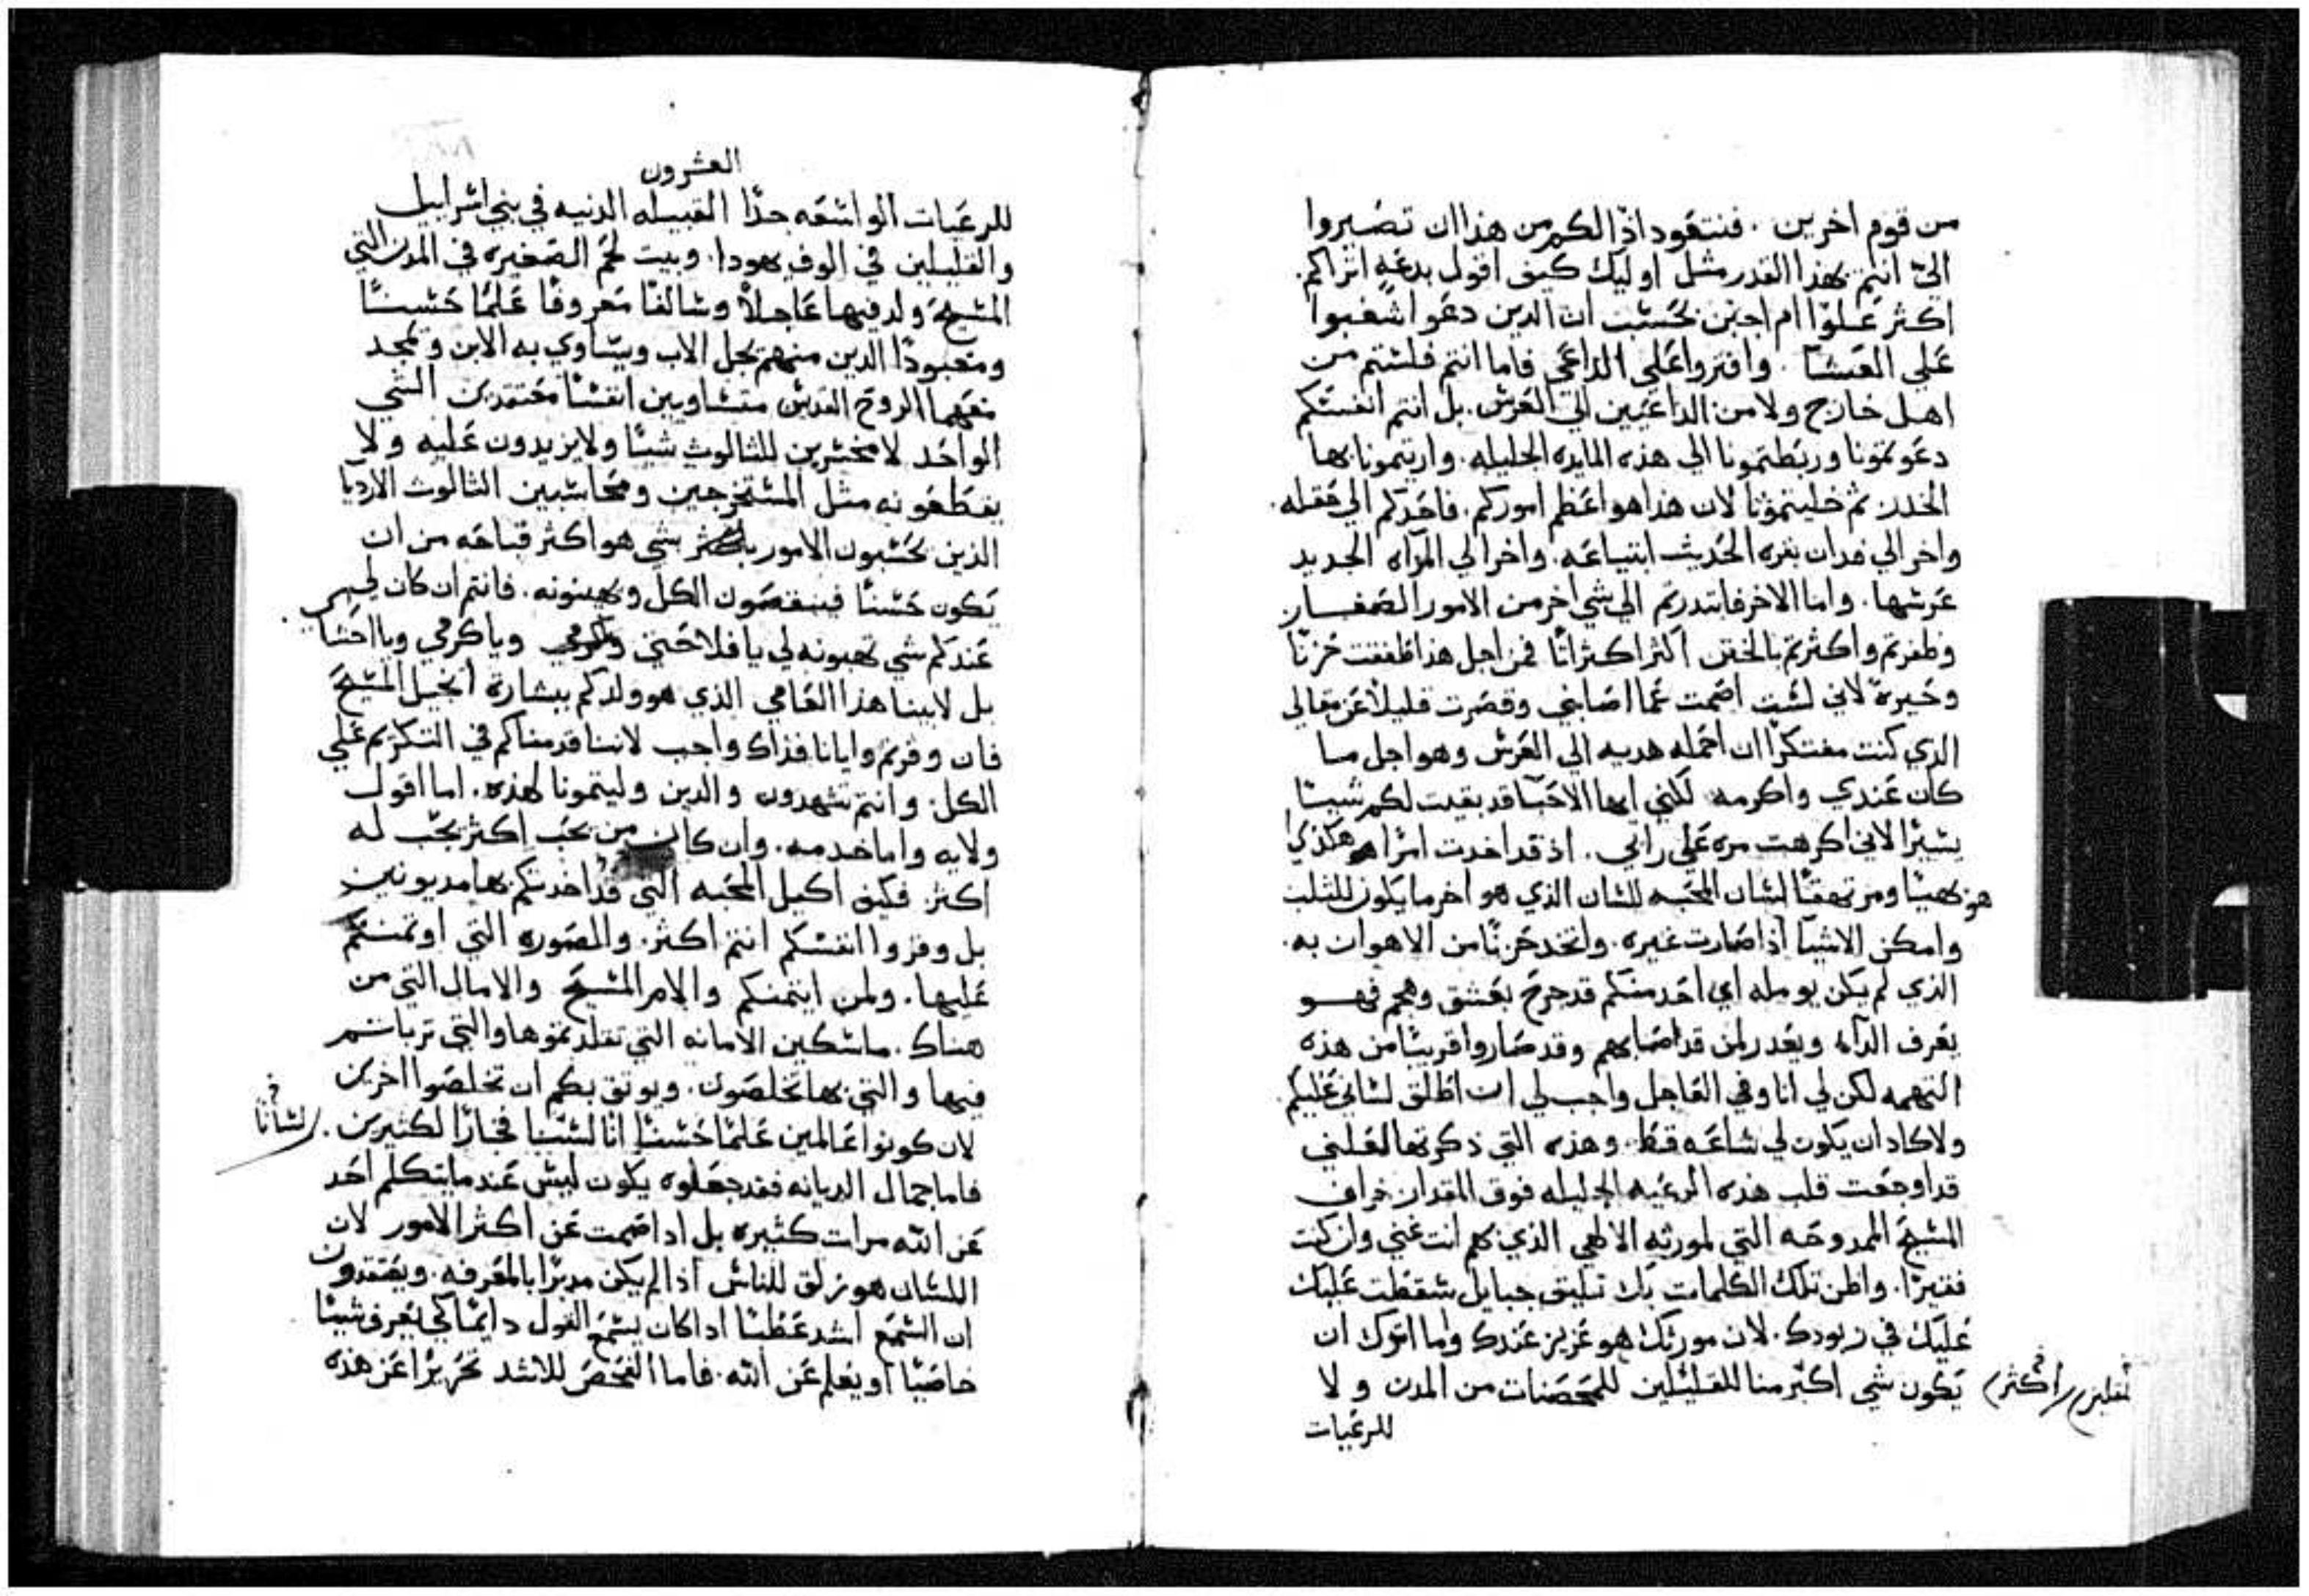 من قوم اخرين. فنتعود اذًا لكم من هذا ان تصيروا
اليّ انتم بهذا القدر مثل اوليك كيف اقول بدعةٍ اتراكم.
اكثر علوًا ام اجبن بحسب ان الدين دعوا شغبوا
علي العشا. وافتروا علي الداعي فاما انتم فلستم من
اهل خارج ولا من الداعيين الي العرس. بل انتم انفسكم
دعوتمونا وربطتمونا الي هذه المايده الجليله. واريتمونا بها
الخدر ثم خليتمونا لان هذا هو اعظم اموركم. فاحدكم الي حقله.
واخر الي فدان بقره الحديث ابتياعه. واخر الي المراه الجديد
عرسها. واما الاخر فابتدرتم الي شي اخر من الامور الصغار
وظفرتم واكثرتم بالحقن اكثر اكثراثًا فمن اجل هذا طفقت حزنًا
وحيرةً لاني لست اصمت عما اصابني وقصرت قليلًا عن مقالي
الذي كنت مفتكرًا ان احمله هديه الي العرس وهو اجل ما
كان عندي واكرمه لكني ايها الاحبا قد بقيت لكم شيئًا
يسيرًا لاني اكرهت مره علي راي. اذ قد اخدت امرًا هو هكذي
هو بهيا ومرتهقًا لسان المحبه للسان الذي هو اخر ما يكون للثلب
وامكن الاشيا اذا صارت غيره. واتخد حزنًا من الاهوان به.
الذي لم يكن يومله اي احد منكم قد جرح بعشق وهجم فهو
يعرف الداء ويعدر لمن قد اصابهم وقد صاروا قريبًا من هذه
التهمه لكن لي انا وفي العاجل واجب لي ان اطلق لساني عليكم.
ولا كاد ان يكون لي ساعه قط. وهذه التي ذكرتها لعلني
قد اوجعت قلب هذه الرعيه الجليله فوق المقدار خراف
المسيح الممدوحه التي لمورثه الالهي الذي بهم انت غني وان كنت
فقيرًا. واظن تلك الكلمات بك تليق حبايل سقطت عليك
عليك في زبودك. لان مورثك هو عزيز عندك واما اترك ان
يكون شي اكثر منا للقليلين للمحصنات من المدن ولا
اكثر
للرعيات
العشرون
للرعيات الواسعه جدًا القبيله الدنيه في بني اسراييل
والقليلين في الوف يهودا. وبيت لحم الصغيره في المدن التي
المسيح ولد فيها عاجلًا وسالفًا معروفًا علمًا حسنًا
ومعبودًا الدين منهم يجل الاب ويساوي به الابن ويمجد
معهما الروح القدس متساويين انفسًا معتقدين الشي
الواحد لا مخسرين للثالوث شيئًا ولا يزيدون عليه ولا
يقطعونه مثل المستخرجين ومحاسبين الثالوث الارديا
الذين يحسبون الامور باكثر شي هو اكثر قباحه من ان
تكون حسنًا فينقصون الكل ويهينونه. فانتم ان كان لي
عندكم شي تهبونه لي يا فلاحتي ويا كرمي ويا احشاي.
بل لابينا هذا العامي الذي هو ولدكم ببشارة انجيل المسيح
فان وقرتم وايانا فذاك واجب لاننا قدمناكم في التكريم علي
الكل: وانتم تشهدون والدين وليتمونا لهذه. اما اقول
ولايه واما خدمه. وان كان من يحب اكثر يحب له
اكثر فكيف اكيل المحبه التي قد اخدتكم بها مديونين
بل وقروا انفسكم انتم اكثر. والصوره التي اوتمنتم
عليها. ولمن ايتمنكم والام المسيح والامال التي من
هناك. ماسكين الامانه التي تقلدتموها والتي تربايتم
فيها والتي بها تخلصون. ويوثق بكم ان تخلصوا اخرين
لان كونوا عالمين علمًا حسنًا انا لسنا فخارًا لكثيرين.
لسانًا
فاما جمال الديانه فقد جعلوه يكون ليس عند ما يتكلم احد
عن الله مرات كثيره بل اذا صمت عن اكثر الامور لان
اللسان هو زلق للناس اذا لم يكن مدبرًا بالمعرفه. ويعتقدون
ان السمع اشد عطبًا اذا كان يسمع القول دايمًا كي يعرف شيئًا
خاصيًا او يعلم عن الله. فاما الفحص للاشد تحريرًا عن هذه